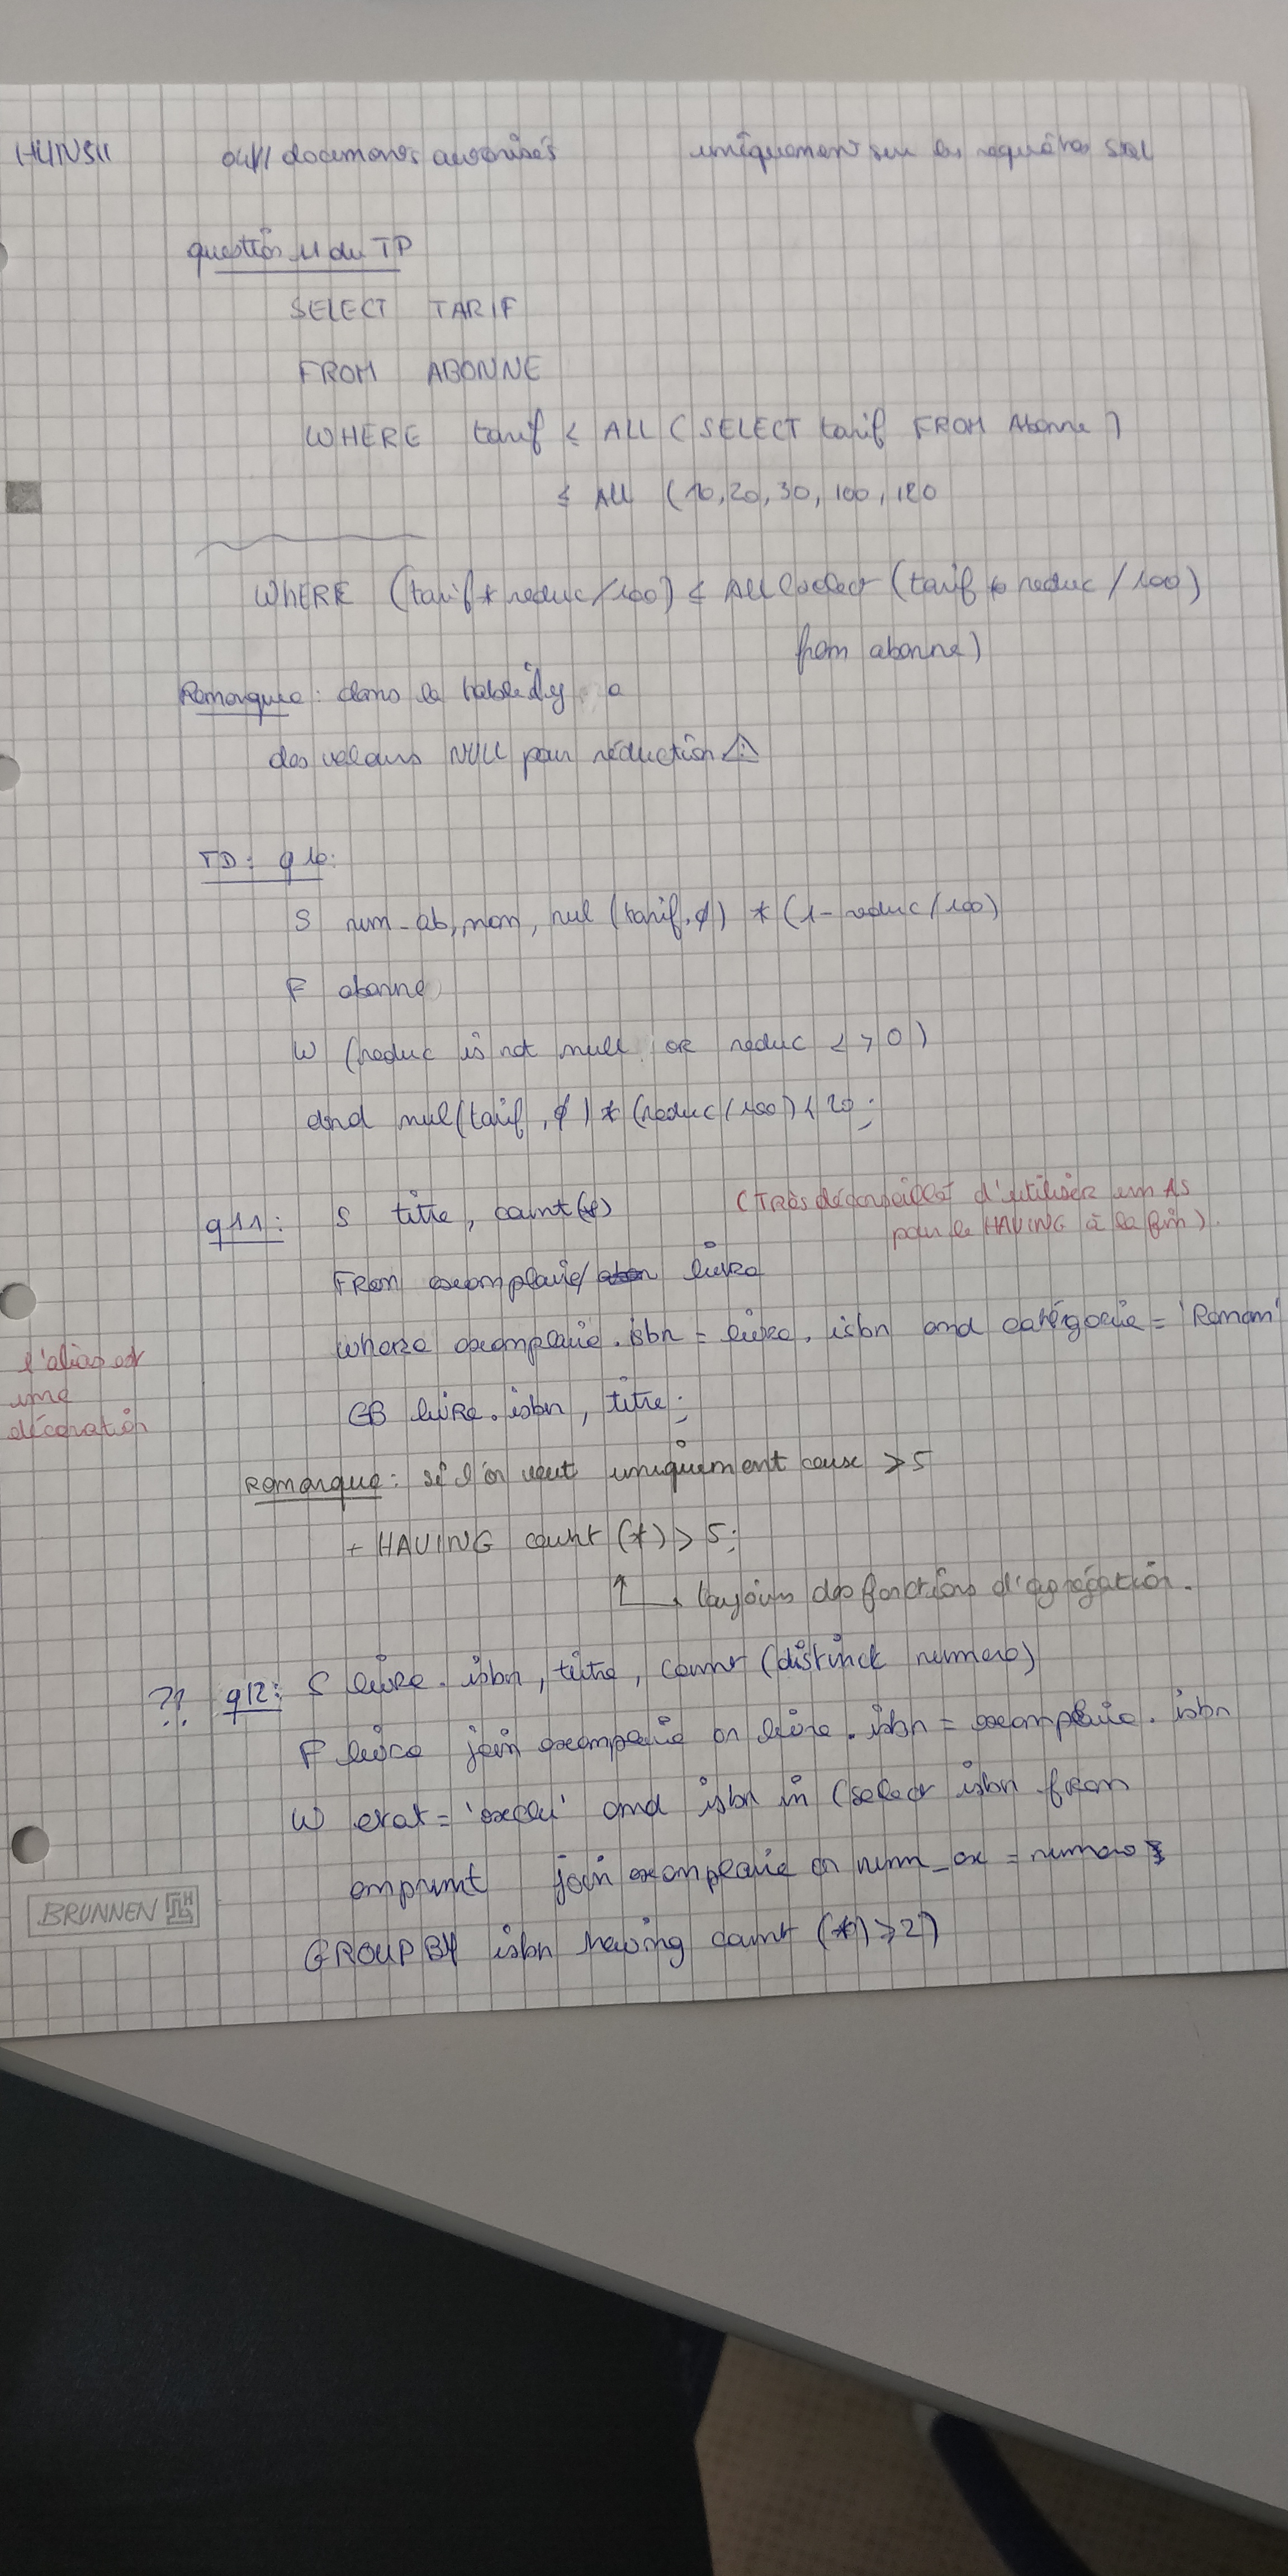 HLIN511 04/11 documents autorisés uniquement sur les requêtes SQL
question 11 du TP
SELECT TARIF
FROM ABONNE
WHERE tarif ≤ ALL (SELECT tarif FROM Abonne)
≤ ALL (10, 20, 30, 100, 120
WHERE (tarif * reduc/100) ≤ ALL (select (tarif * reduc/100)
from abonne)
Remarque : dans la table il y a
des valeurs NULL pour réduction ⚠
TD : q 10 :
S num_ab, nom, nvl (tarif, ∅) * (1 - reduc/100)
F abonne
W (reduc is not null or reduc <> 0)
and nvl (tarif, ∅) * (reduc/100) < 20 ;
q11 : S titre, count(*)
(Très déconseillé d'utiliser un AS
pour le HAVING à la fin).
From exemplaire, livre
where exemplaire.isbn = livre.isbn and catégorie = 'Roman'
l'alias est
une
décoration
GB livre.isbn, titre ;
Remarque : si l'on veut uniquement ceux > 5
+ HAVING count (*) > 5 ;
↳ toujours des fonctions d'agrégation.
?! q12 : S livre.isbn, titre, count (distinct numero)
F livre join exemplaire on livre.isbn = exemplaire.isbn
W etat = 'exclu' and isbn in (select isbn from
emprunt join exemplaire on num_ex = numero
BRUNNEN
GROUP BY isbn having count (*) ≥ 2)